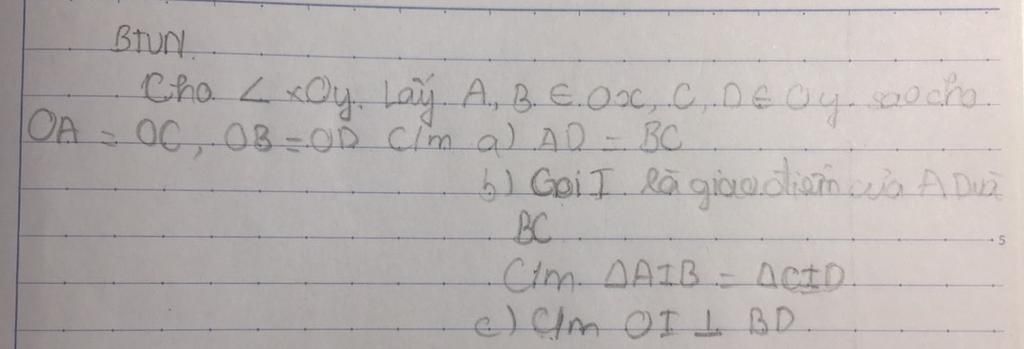 BTVN.
Cho ∠xOy. Lấy A, B ∈ Ox, C, D ∈ Oy sao cho.
OA = OC, OB = OD C/m a) AD = BC
b) Gọi I là giao điểm của AD và
BC
C/m. ΔAIB = ΔCID
c) C/m OI ⊥ BD.
5